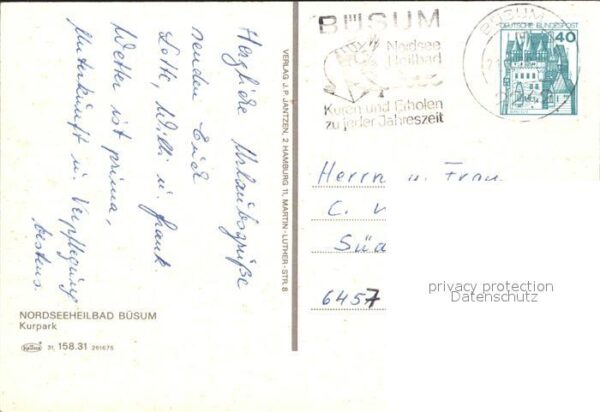 Herzliche Urlaubsgrüße
senden Euch
Lotte, Willi u. Frank.
Wetter ist prima,
Unterkunft u. Verpflegung
bestens.
NORDSEEHEILBAD BÜSUM
Kurpark
31, 158.31 261675
VERLAG J. P. JANTZEN, 2 HAMBURG 11, MARTIN-LUTHER-STR. 8
BÜSUM
Nordsee
Heilbad
Kuren und Erholen
zu jeder Jahreszeit
BÜSUM
DEUTSCHE BUNDESPOST
40
Herrn u. Frau
C.
Süd
6457
privacy protection
Datenschutz